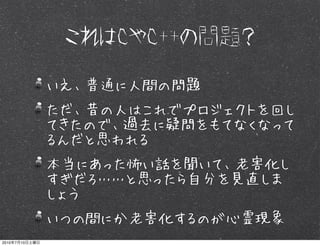 これはCやC++の問題?
いえ、普通に人間の問題
ただ、昔の人はこれでプロジェクトを回し
てきたので、過去に疑問をもてなくなって
るんだと思われる
本当にあった怖い話を聞いて、老害化し
すぎだろ……と思ったら自分を見直しま
しょう
いつの間にか老害化するのが心霊現象
2012年7月10日火曜日